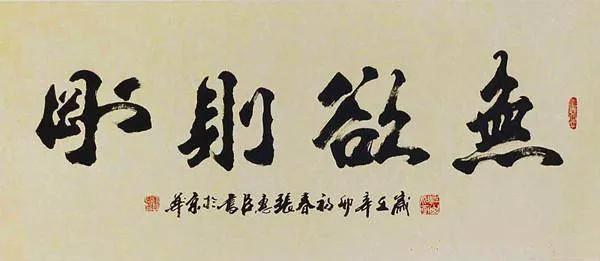 無欲則剛
歲在辛卯初春張惠臣書於京華